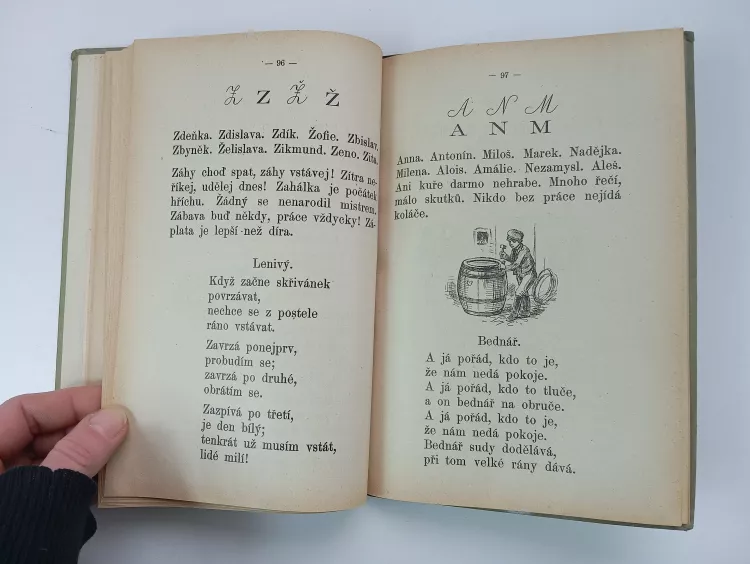 — 96 —
Z Z Ž Ž
Zdeňka. Zdislava. Zdík. Žofie. Zbislav.
Zbyněk. Želislava. Zikmund. Zeno. Zita.
Záhy choď spat, záhy vstávej! Zítra ne-
říkej, udělej dnes! Zahálka je počátek
hříchu. Žádný se nenarodil mistrem.
Zábava buď někdy, práce vždycky! Zá-
plata je lepší než díra.
Lenivý.
Když začne skřivánek
povrzávat,
nechce se z postele
ráno vstávat.
Zavrzá ponejprv,
probudím se;
zavrzá po druhé,
obrátím se.
Zazpívá po třetí,
je den bílý;
tenkrát už musím vstát,
lidé milí!
— 97 —
A N M
A N M
Anna. Antonín. Miloš. Marek. Nadějka.
Milena. Alois. Amálie. Nezamysl. Aleš.
Ani kuře darmo nehrabe. Mnoho řečí,
málo skutků. Nikdo bez práce nejídá
koláče.
Bednář.
A já pořád, kdo to je,
že nám nedá pokoje.
A já pořád, kdo to tluče,
a on bednář na obruče.
A já pořád, kdo to je,
že nám nedá pokoje.
Bednář sudy dodělává,
při tom velké rány dává.